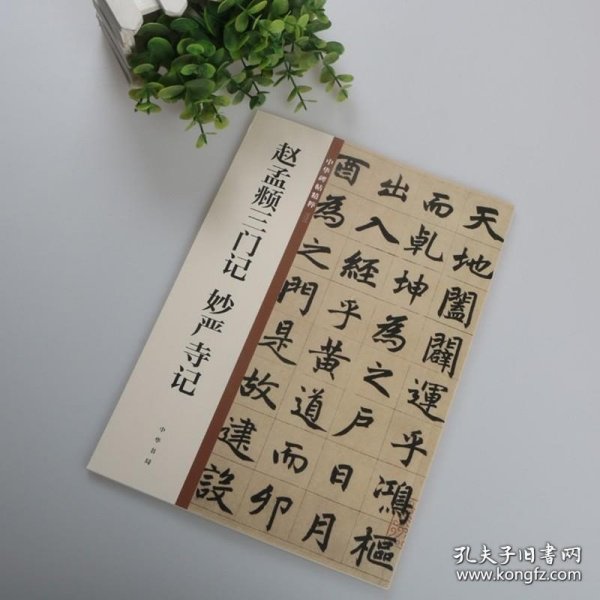 赵孟𫖯三门记 妙严寺记
中华书局
中华碑帖精粹
天地闔闢運乎鴻樞
而乹坤為之户日月
出入經乎黄道而卯
酉為之門是故建設
孔夫子旧书网
www.kongfz.com